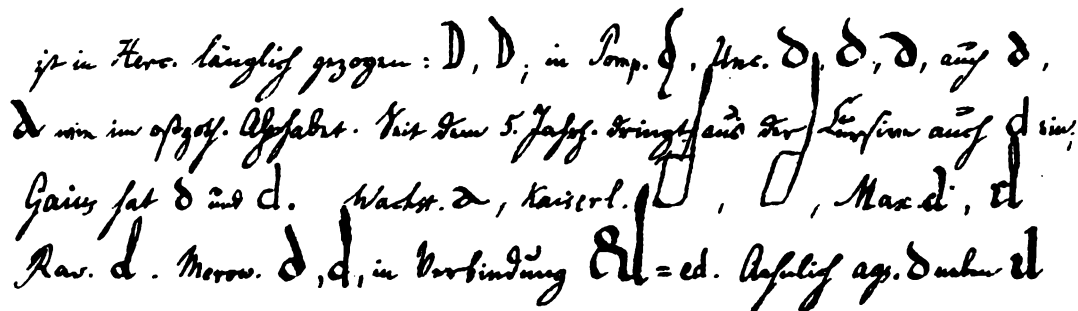 ist in Herc. länglich gezogen: D, D; in Pomp. d, Unc. d, d, d, auch d,
d wie im ostgoth. Alphabet. Seit dem 5. Jahrh. dringt aus der Cursive auch d ein;
Gaius hat d und d. Wachst. d, Kaiserl. d, d, Max. d, d
Rav. d. Merow. d, d, in Verbindung &d = ed. Aehnlich ags. d neben d